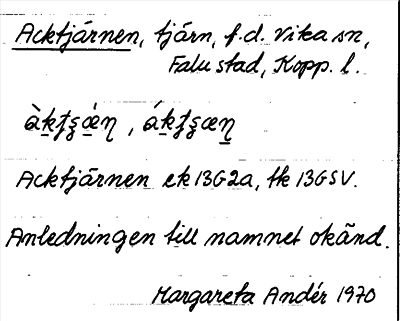 Acktjärnen, tjärn, f.d. Vika sn,
Falu stad, Kopp. l.
Acktjärnen ek 13G2a, tk 13GSV.
Anledningen till namnet okänd.
Margareta Andér 1970